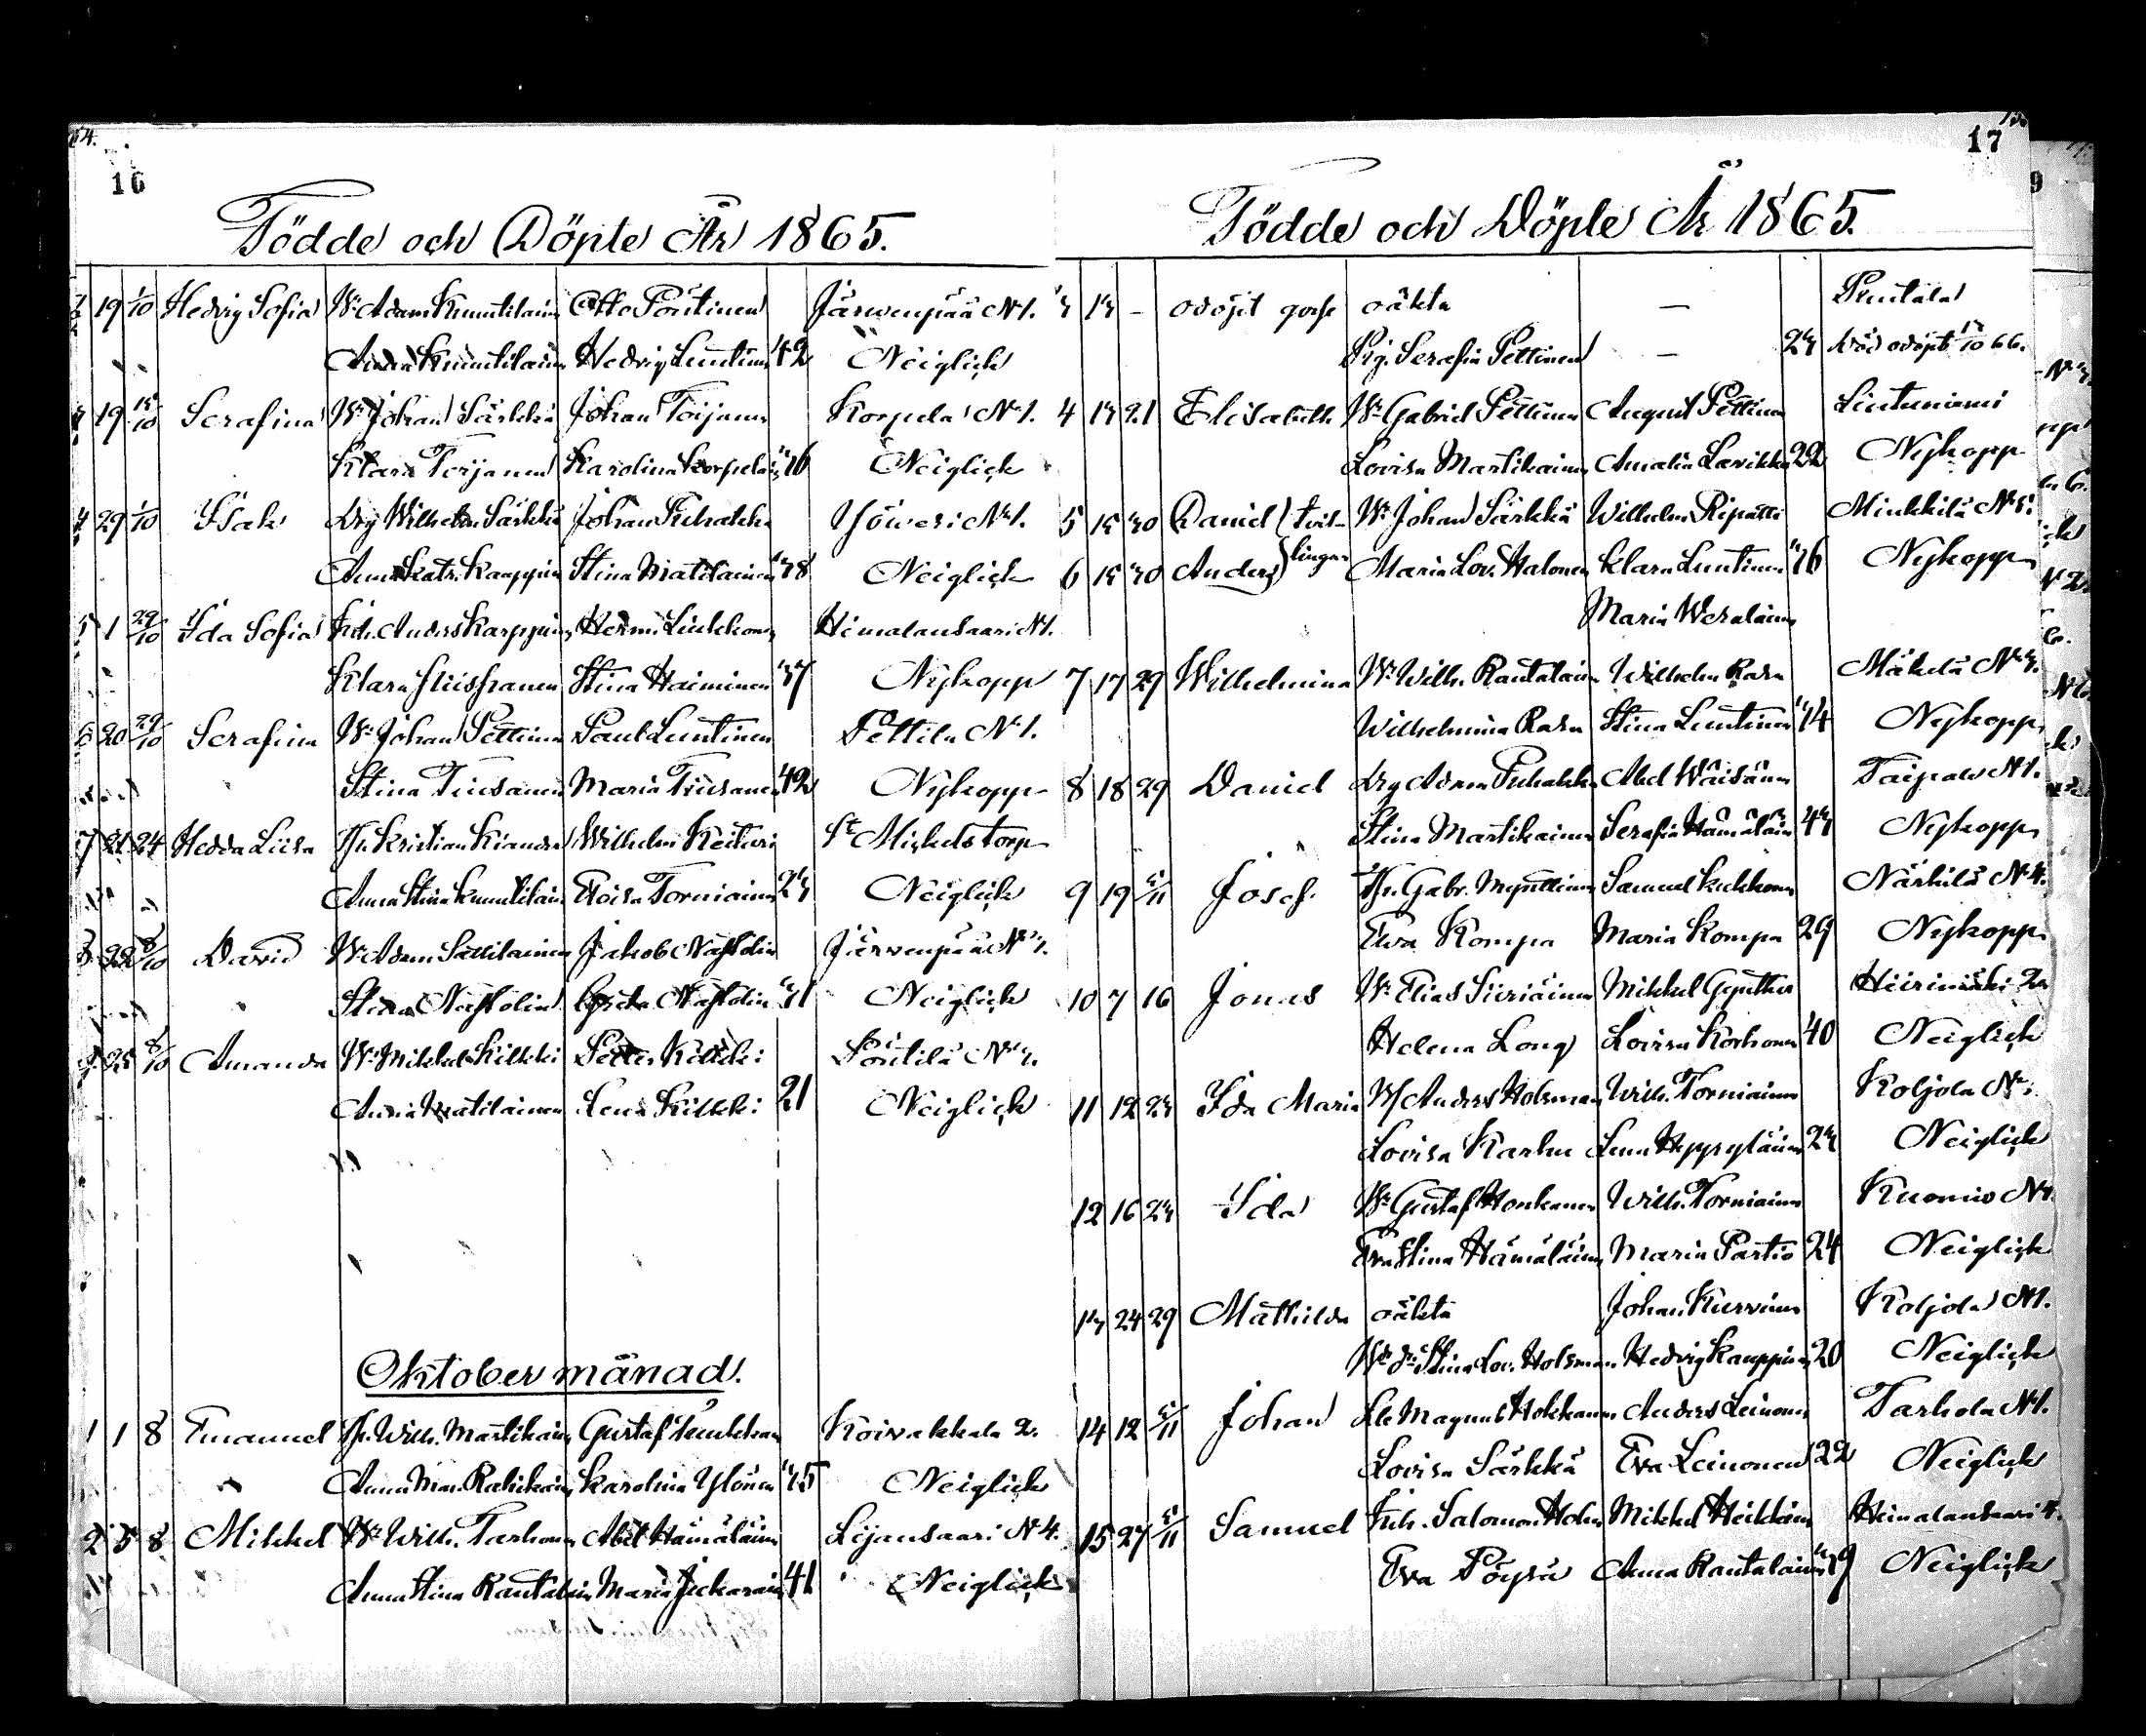 16
Födde och Döpte År 1865.
19 1/10 Hedvig Sofia Adam Kuuttilain Otto Pöntinen Järvenpää N 1.
Kunttilain Hedvig Luntinen 42 Neiglick
19 15/10 Serafina Johan Särkkä Johan Torjanen Korpela N 1.
Klara Torjanen Karolina Korpelain 36 Neiglick
4 29 1/10 Isak Drg Wilhelm Särkkä Johan Puhakka Yöweri N 1.
Anna Katr. Kauppin Stina Matilainen 38 Neiglick
5 1 29/10 Ida Sofia Inh. Anders Karppin Herm. Liukkonen Himalansaari N 1.
Klara Hiissanen Stina Haiminen 37 Nykopp
6 20 29/10 Serafina Johan Pettinen Paul Luntinen Pettilä N 1.
Stina Tiusanen Maria Tiusanen 42 Nykopp
7 21 24 Hedda Liisa Kristian Kiander Wilhelm Keituri St Michels torp
Anna Stina Kuuttilain Torniainen 23 Neiglick
8 22 8/10 David Adam Sattilainen Jakob Nasholin Järvenpää N 1.
Stina Nasholin Nasholin 31 Neiglick
9 25 8/10 Amanda Mikkel Kilkki Petter Kilkki Pöntilä N
Anna Matilainen Lena Kilkki 21 Neiglick
Oktober månad.
1 1 8 Emanuel Wilh. Martikain Gustaf Koivakkala 2.
Anna Mar. Rahikain Karolina Ylönen 35 Neiglick
2 5 8 Mikkel Wilh. Tarhonen Abel Hämäläinen Lijansaari N 4.
Anna Stina Rautalain Maria 41 Neiglick
17
Födde och Döpte År 1865.
3 13 – odöpt gosse oäkta –
Pig. Serafin Pettinen – 23 död odöpt 13/10 66.
4 13 21 Elisabeth Gabriel Pettinen August Pettinen Liutuniemi
Lovisa Martikainen Amalia Lavikka 22 Nykopp
5 15 30 Daniel } tvil- Johan Särkkä Wilhelm Ripatti Minkkilä N
6 15 30 Anders } lingar Maria Lov. Halonen Klara Luntinen 36 Nykopp
Maria
7 17 29 Wilhelmina Wilh. Rautalain Wilhelm Rasa Mäkelä N 3.
Wilhelmina Rasa Stina Luntinen 34 Nykopp
8 18 29 Daniel Drg Adam Puhakka Abel Wäisänen Taipale N 1.
Stina Martikainen Serafin Hämäläin 43 Nykopp
9 19 5/11 Josef. Gabr. Mynttinen Samuel Kukkonen Närhilä N 4.
Eva Kompa Maria Kompa 29 Nykopp
10 7 16 Jonas Elias Siiriäinen Mikkel Gynther 2
Helena Long Lovisa Korhonen 40 Neiglick
11 12 23 Ida Maria Anders Holsman Wilh. Torniainen Koljola N
Lovisa Karhu Lena Hyyryläinen 23 Neiglick
12 16 23 Ida Gustaf Honkanen Wilh. Torniainen Kuomio N
Eva Stina Hämäläinen Maria Partio 24 Neiglick
13 24 29 Mathilda oäkta Johan Kurvinen Koljola N 1.
Stina Lov. Holsman Hedvig Kauppinen 20 Neiglick
14 12 5/11 Johan Magnus Hokkanen Anders Leinonen Tarhola N 1.
Lovisa Särkkä Eva Leinonen 22 Neiglick
15 27 5/11 Samuel Inh. Salomon Holm Mikkel Heikkinen Himalansaari 4.
Eva Pöyry Anna Rautalain 39 Neiglick